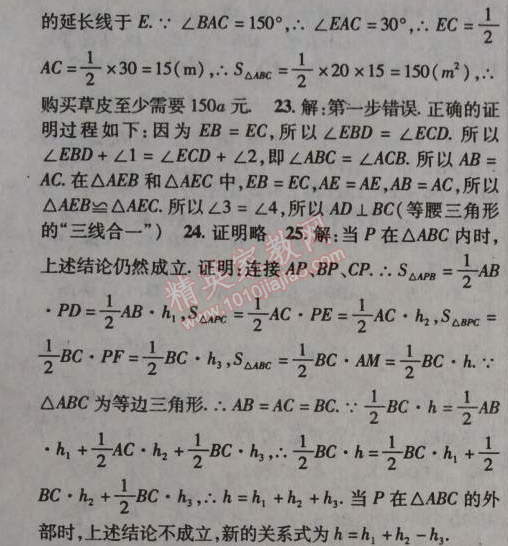 的延长线于 E. ∵ ∠BAC = 150°, ∴ ∠EAC = 30°, ∴ EC = 1/2
AC = 1/2 × 30 = 15(m), ∴ S△ABC = 1/2 × 20 × 15 = 150(m²), ∴
购买草皮至少需要 150a 元. 23. 解:第一步错误. 正确的证
明过程如下:因为 EB = EC, 所以 ∠EBD = ∠ECD. 所以
∠EBD + ∠1 = ∠ECD + ∠2, 即 ∠ABC = ∠ACB. 所以 AB =
AC. 在△AEB 和△AEC 中, EB = EC, AE = AE, AB = AC, 所以
△AEB≌△AEC. 所以∠3 = ∠4, 所以 AD⊥BC(等腰三角形
的“三线合一”) 24. 证明略 25. 解:当 P 在△ABC 内时,
上述结论仍然成立. 证明:连接 AP、BP、CP. ∴ S△APB = 1/2 AB
· PD = 1/2 AB · h₁, S△APC = 1/2 AC · PE = 1/2 AC · h₂, S△BPC =
1/2 BC · PF = 1/2 BC · h₃, S△ABC = 1/2 BC · AM = 1/2 BC · h. ∵
△ABC 为等边三角形. ∴ AB = AC = BC. ∵ 1/2 BC · h = 1/2 AB
· h₁ + 1/2 AC · h₂ + 1/2 BC · h₃, ∴ 1/2 BC · h = 1/2 BC · h₁ + 1/2
BC · h₂ + 1/2 BC · h₃, ∴ h = h₁ + h₂ + h₃. 当 P 在△ABC 的外
部时, 上述结论不成立, 新的关系式为 h = h₁ + h₂ - h₃.
精英家教网
www.1010jiajiao.com